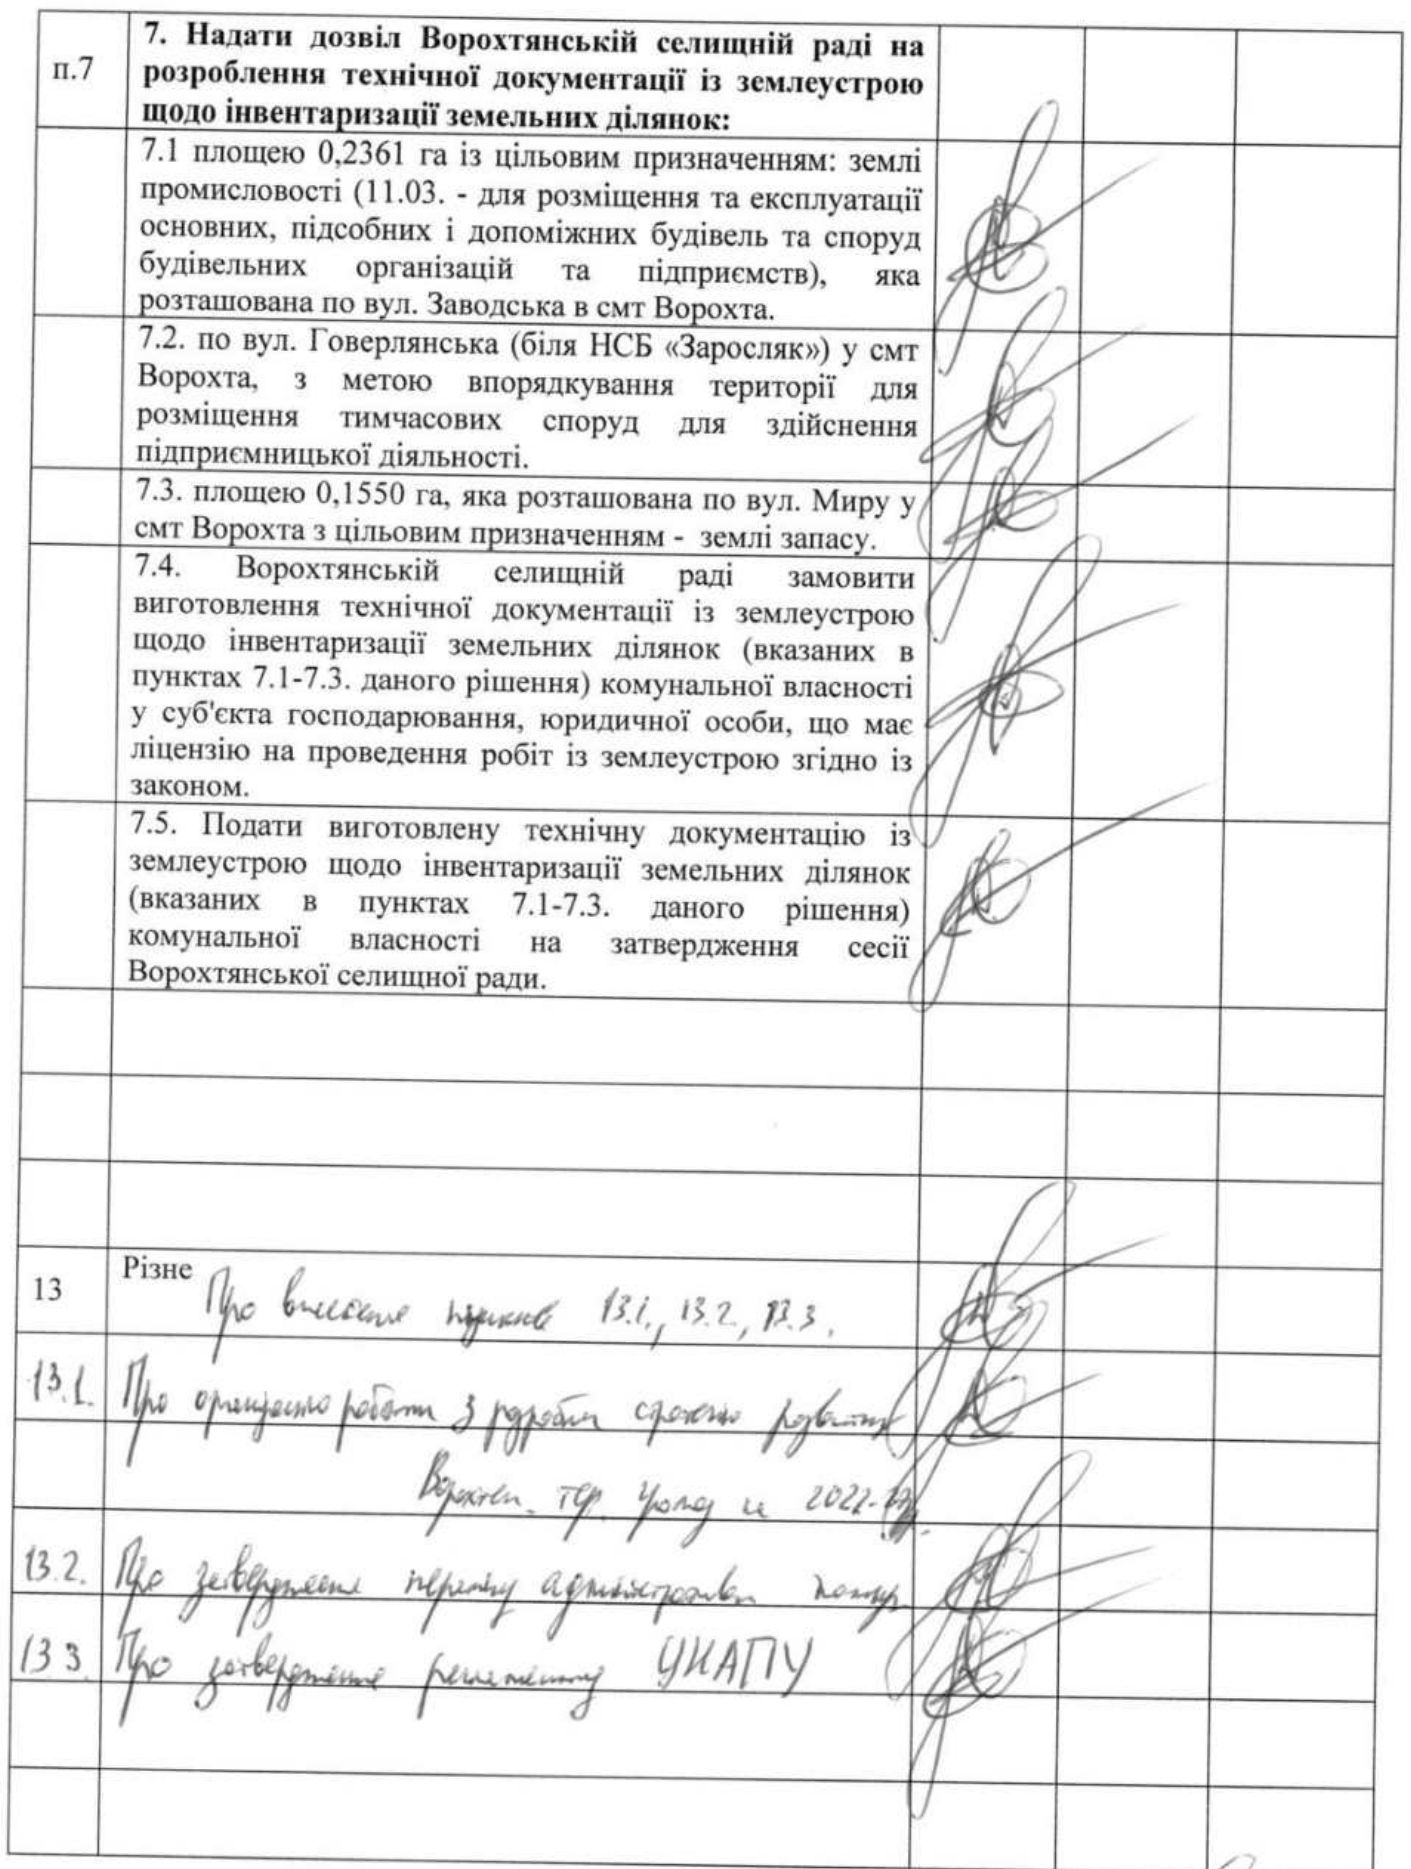 п.7
7. Надати дозвіл Ворохтянській селищній раді на
розроблення технічної документації із землеустрою
щодо інвентаризації земельних ділянок:
7.1 площею 0,2361 га із цільовим призначенням: землі
промисловості (11.03. - для розміщення та експлуатації
основних, підсобних і допоміжних будівель та споруд
будівельних організацій та підприємств), яка
розташована по вул. Заводська в смт Ворохта.
7.2. по вул. Говерлянська (біля НСБ «Заросляк») у смт
Ворохта, з метою впорядкування території для
розміщення тимчасових споруд для здійснення
підприємницької діяльності.
7.3. площею 0,1550 га, яка розташована по вул. Миру у
смт Ворохта з цільовим призначенням - землі запасу.
7.4. Ворохтянській селищній раді замовити
виготовлення технічної документації із землеустрою
щодо інвентаризації земельних ділянок (вказаних в
пунктах 7.1-7.3. даного рішення) комунальної власності
у суб'єкта господарювання, юридичної особи, що має
ліцензію на проведення робіт із землеустрою згідно із
законом.
7.5. Подати виготовлену технічну документацію із
землеустрою щодо інвентаризації земельних ділянок
(вказаних в пунктах 7.1-7.3. даного рішення)
комунальної власності на затвердження сесії
Ворохтянської селищної ради.
13
Різне
Про внесення пунктів 13.1., 13.2., 13.3.
13.1. Про роботи з розвитку
тер. на 2022-
13.2. Про затвердження переліку
13.3. Про затвердження регламенту ЦНАПУ